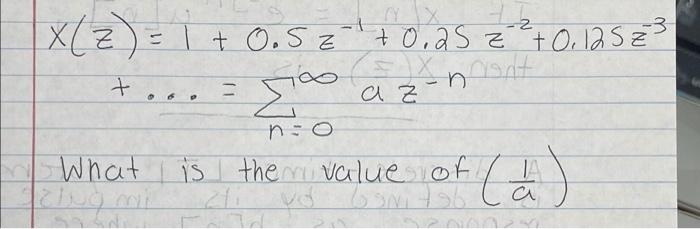 X(z) = 1 + 0.5 z⁻¹ + 0.25 z⁻² + 0.125 z⁻³
+ ... = ∑_{n=0}^{∞} a z⁻ⁿ
What is the value of (1/a)